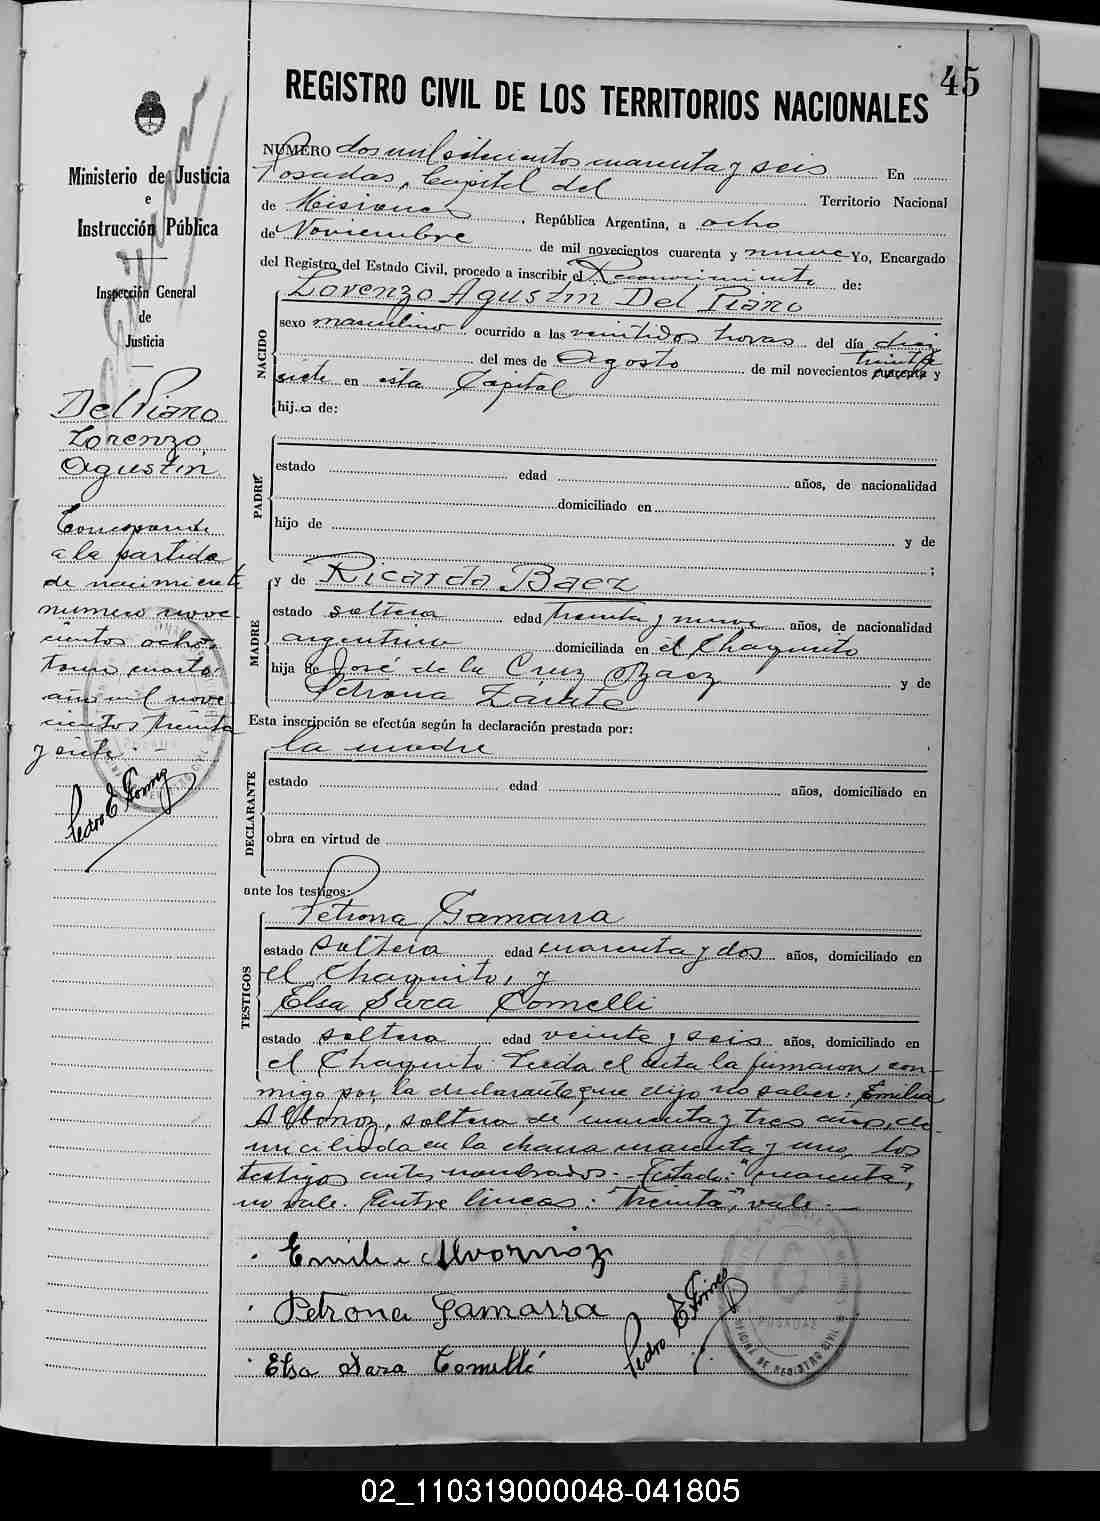 45
REGISTRO CIVIL DE LOS TERRITORIOS NACIONALES
Ministerio de Justicia
e
Instrucción Pública
Inspección General
de
Justicia
Del Piano
Lorenzo
Agustín
Corresponde
a la partida
de nacimiento
número nove
cientos ocho,
tomo cuarto,
año mil nove
cientos treinta
y siete.
Pedro E
NUMERO dos mil setecientos cuarenta y seis En
Posadas, Capital del Territorio Nacional
de Misiones, República Argentina, a ocho
de Noviembre de mil novecientos cuarenta y nueve Yo, Encargado
del Registro del Estado Civil, procedo a inscribir el Reconocimiento de:
Lorenzo Agustín Del Piano
NACIDO
sexo masculino ocurrido a las veintidos horas del día diez
del mes de Agosto de mil novecientos treinta cuarenta y
siete en esta Capital
hij.o de:
PADRE
estado edad años, de nacionalidad
domiciliado en
hijo de y de
;
MADRE
y de Ricarda Baez
estado soltera edad treinta y nueve años, de nacionalidad
argentina domiciliada en el Chaquito
hija de José de la Cruz Baez y de
Petrona Zárate
Esta inscripción se efectúa según la declaración prestada por:
la madre
DECLARANTE
estado edad años, domiciliado en
obra en virtud de
ante los testigos:
TESTIGOS
Petrona Gamarra
estado soltera edad cuarenta y dos años, domiciliado en
el Chaquito, y
Elsa Sara Comelli
estado soltera edad veinte y seis años, domiciliado en
el Chaquito Leida el acta la firmaron con-
migo por la declarante que dijo no saber: Emilia
Albornoz, soltera de cuarenta y tres años, do-
miciliada en la chacra cuarenta y uno, los
testigos antes nombrados.- Testado: "cuarenta",
no vale. Entre lineas: "treinta", vale.-
Emilia Alvornoz
Petrona Gamarra
Elsa Sara Comelli
Pedro E
POSADAS
OFICINA DE REGISTRO CIVIL
02_110319000048-041805